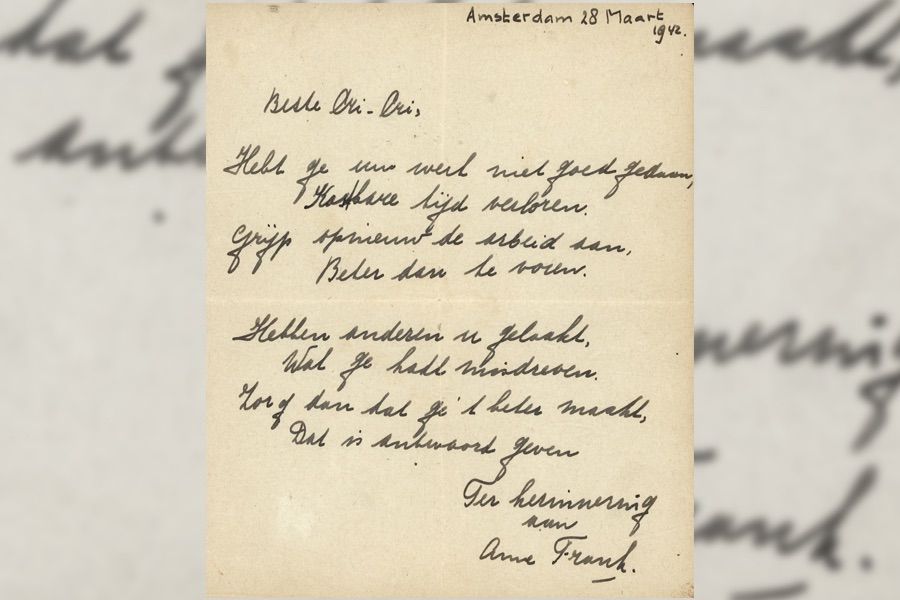 Amsterdam 28 Maart
1942.
Beste Cri-Cri,
Hebt ge uw werk niet goed gedaan,
Kostbare tijd verloren.
Grijp opnieuw de arbeid aan,
Beter dan te voren.
Hebben anderen u gelaakt,
Wat ge hadt misdreven.
Zorg dan dat ge't beter maakt,
Dat is antwoord geven
Ter herinnering
aan
Anne Frank.